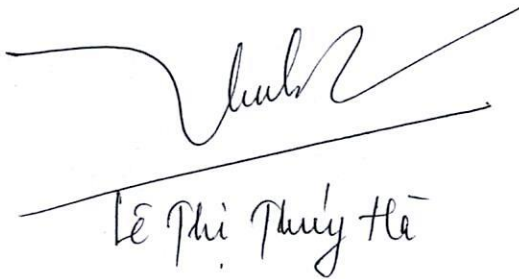 Lê Thị Thúy Hà